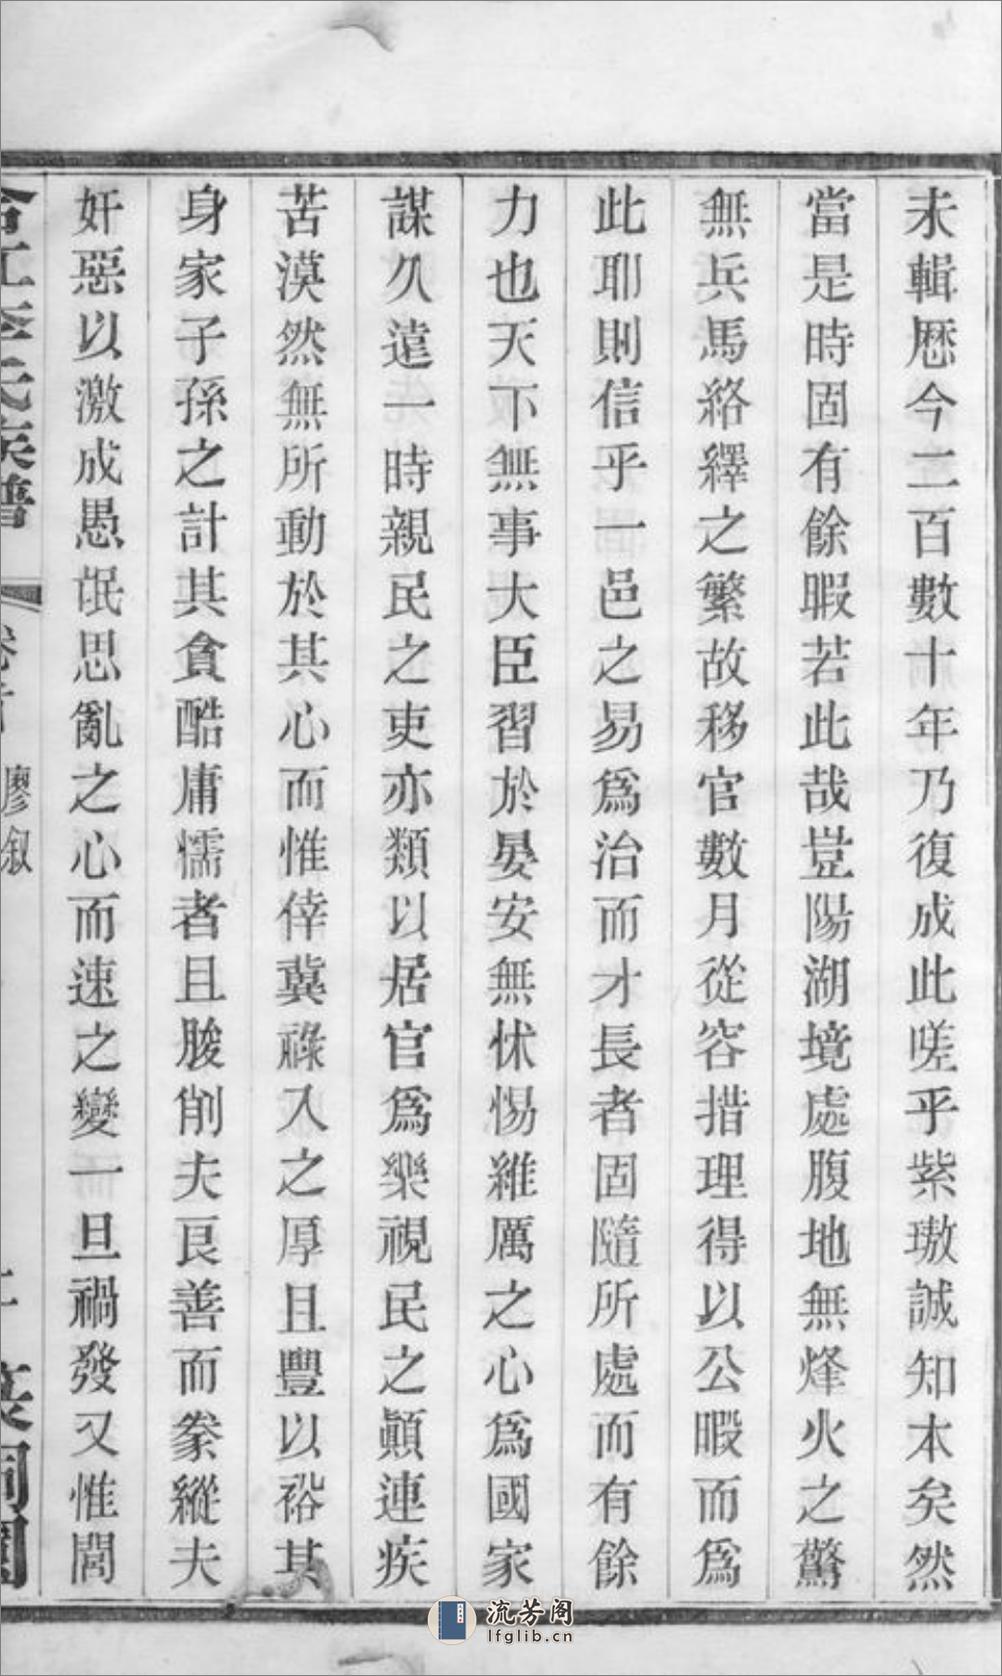 未輯歷今二百數十年乃復成此嗟乎紫璈誠知本矣然
當是時固有餘暇若此哉豈陽湖境處腹地無烽火之驚
無兵馬絡繹之繁故移官數月從容措理得以公暇而爲
此耶則信乎一邑之易爲治而才長者固隨所處而有餘
力也天下無事大臣習於晏安無怵惕維厲之心爲國家
謀久遠一時親民之吏亦類以居官爲樂視民之顚連疾
苦漠然無所動於其心而惟倖冀祿入之厚且豐以裕其
身家子孫之計其貪酷庸懦者且朘削夫良善而豢縱夫
奸惡以激成愚氓思亂之心而速之變一旦禍發又惟閭
合江李氏族譜
卷首
廖叙
流芳阁
lfglib.cn